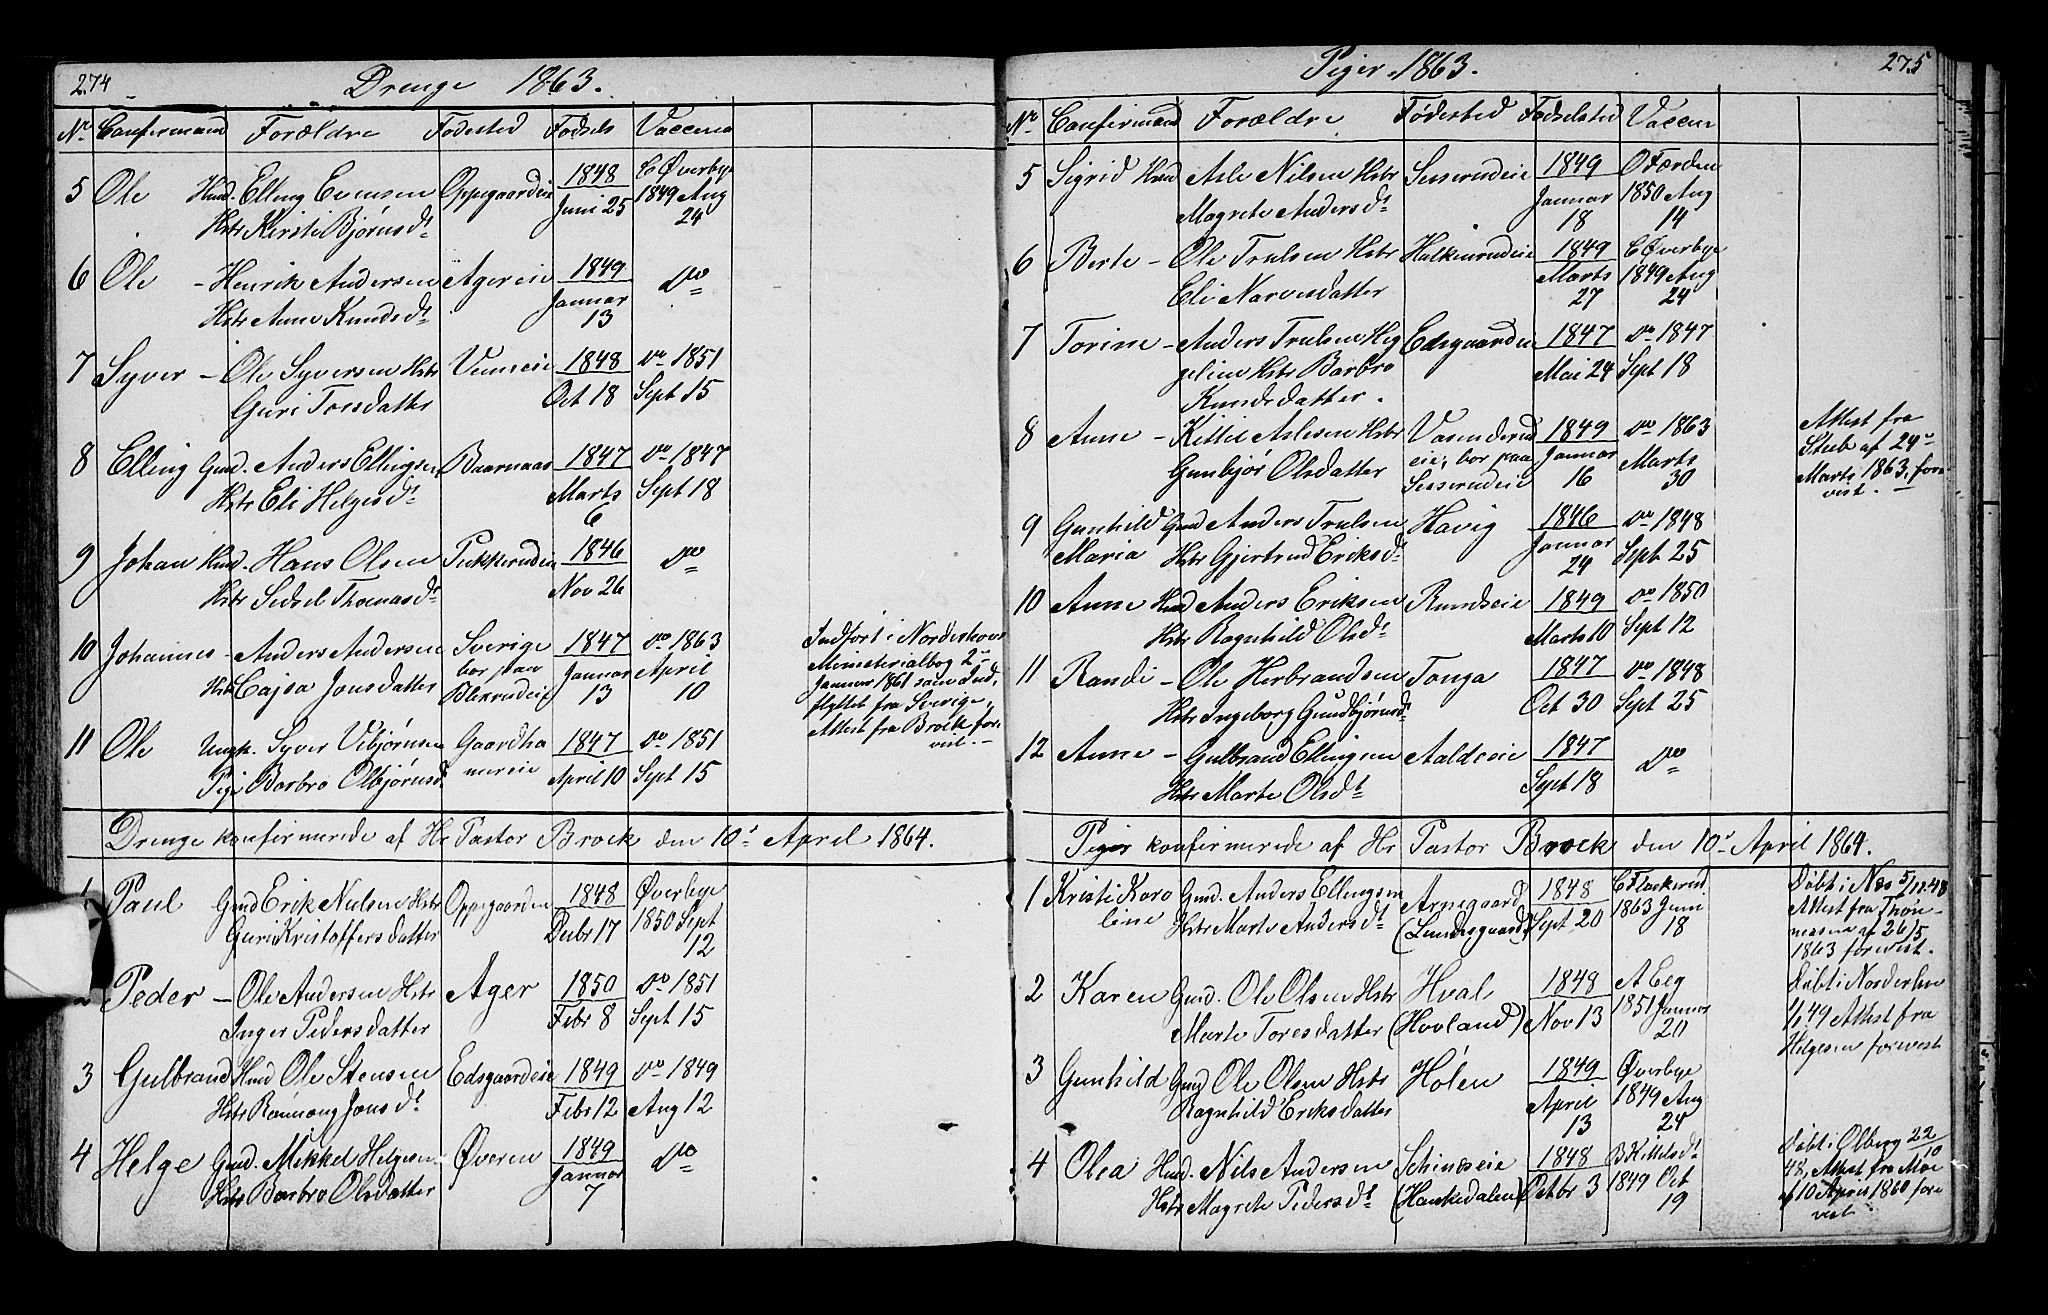 274 Drenge 1863.
No Confirmand Forældre Fødested Fødsels Vaccina
5 Ole Huusd. Elling Evensen Oppegaardeie 1848 C Øverbye
Hstr Kirsti Bjørnsdt Juni 25 1849 Aug
24
6 Ole - Henrik Andersen Agereie 1849 do
Hstr Anne Knudsdt Januar
13
7 Syver - Ole Syversen Hstr Vemeie 1848 do 1851
Guri Torsdatter Oct 18 Sept 15
8 Elling Gmd. Anders Ellingsen Baarnaas 1847 do 1847
Hstr Eli Helgesdt Marts Sept 18
6
9 Johan Hmd. Hans Olsen Pukkerudeie 1846 do
Hstr Sidsel Thomasdt Nov 26
10 Johannes - Anders Andersen Sverige 1847 do 1863 Indført i Norderhovs
Hstr Cajsa Jonsdatter bor paa Januar April Ministerialbog 2
Blexrudeie 13 10 Januar 1861 som Ind,
flyttet fra Sverige,
Attest fra Brock fore
vist.
11 Ole Ungk. Syver Vibjørnsen Gaardha 1847 do 1851
Pige Barbro Olbjørnsd mereie April 10 Sept 15
Drenge konfirmerede af Hr Pastor Brock den 10 April 1864.
1 Paul Gmd Erik Nielsen Hstr Oppegaarden 1848 Øverbye
Guri Kristoffersdatter Decbr 17 1850 Sept
12
2 Peder - Ole Andersen Hstr Ager 1850 do 1851
Inger Pedersdatter Febr 8 Sept 15
3 Gulbrand Hmd Ole Stensen Edsgaardeie 1849 do 1849
Hstr Rønnaug Jonsdt Febr 12 Aug 12
4 Helge Gmd. Mikkel Helgesen Øveren 1849 do
Hstr Barbro Olsdatter Januar
7
Piger 1863. 275
No Confirmand Forældre Fødested Fødselsted Vaccin
5 Sigrid Hmd Asle Nilsen Hstr Sesserudeie 1849 O Førden
Magrete Andersdt Januar 1850 Aug
18 14
6 Berte - Ole Trulsen Hstr Halkinrudeie 1849 C Øverbye
Eli Narvesdatter Marts 1849 Aug
27 24
7 Torine - Anders Trulsen Hig Edsgaardeie 1847 do 1847
gelien Hstr Barbro Mai 24 Sept 18
Knudsdatter.
8 Anne - Kittil Aslesen Hstr Vasenderud 1849 do 1863 Attest fra
Gunbjør Olsdatter eie, bor paa Januar Marts Steub af 24
Sesserudeie 16 30 Marts 1863, fore
vist.
9 Gunhild Gmd Anders Trulsen Havig 1846 do 1848
Maria Hstr Gjertrud Eriksdt Januar Sept 25
24
10 Anne Hmd Anders Eriksen Rundseie 1849 do 1850
Hstr Ragnhild Olsdt Marts 10 Sept 12
11 Randi - Ole Herbrandsen Tonga 1847 do 1848
Hstr Ingeborg Gundbjørnsdt Oct 30 Sept 25
12 Anne - Gulbrand Ellingsen Aaldseie 1847 do
Hstr Marte Olsdt Sept 18
Piger konfirmerede af Hr Pastor Brock den 10 April 1864.
1 Kristi Karo Gmd. Anders Ellingsen Arnegaard 1848 C Flaskerud Døbt i Næs 5/11 48
line Hstr Marte Andersdt (Lundesgaard) Sept 20 1863 Juni Attest fra Thøn
18 nesen af 26/5
1863 forevist.
2 Karen Gmd. Ole Olsen Hstr Hval 1848 A Eeg Døbt i Norderhov
Marte Toresdatter (Hovland) Nov 13 1851 Januar 1/1 49 Attest fra
20 Helgesen forevist
3 Gunhild Gmd Ole Olsen Hstr Holen 1849 Øverbye
Ragnhild Eriksdatter April 1849 Aug
13 24
4 Olea Hmd. Nils Andersen Schinseie 1848 B Kittilsdt Døbt i Olberg 22/10
Hstr Magrete Pedersdt (Hankedalen) Octbr 3 1849 Oct 48, Attest fra Moe
19 af 10 April 1860 fore
vist